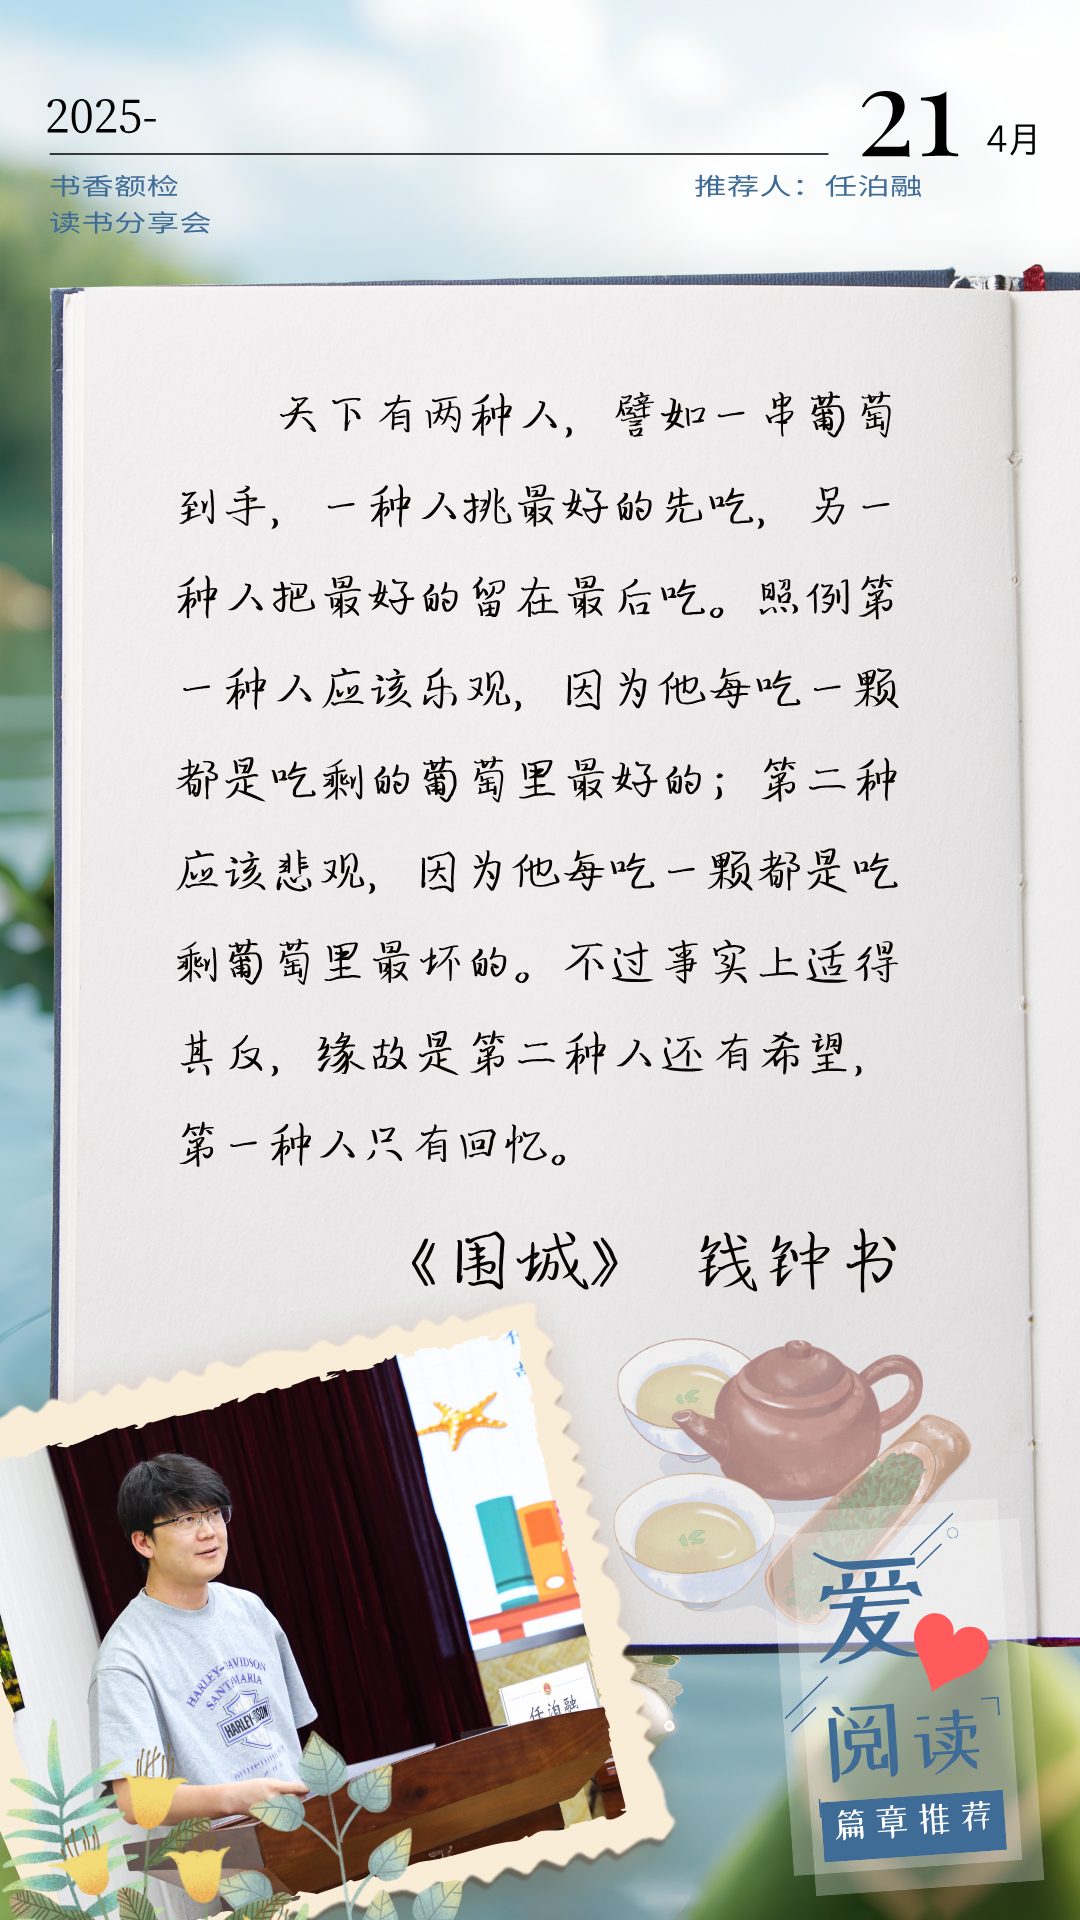 2025-
21 4月
书香额检
读书分享会
推荐人：任泊融
天下有两种人，譬如一串葡萄
到手，一种人挑最好的先吃，另一
种人把最好的留在最后吃。照例第
一种人应该乐观，因为他每吃一颗
都是吃剩的葡萄里最好的；第二种
应该悲观，因为他每吃一颗都是吃
剩葡萄里最坏的。不过事实上适得
其反，缘故是第二种人还有希望，
第一种人只有回忆。
《围城》 钱钟书
HARLEY-DAVIDSON
SANTA MARIA
HARLEY-DAVIDSON
任泊融
爱
阅读
篇章推荐